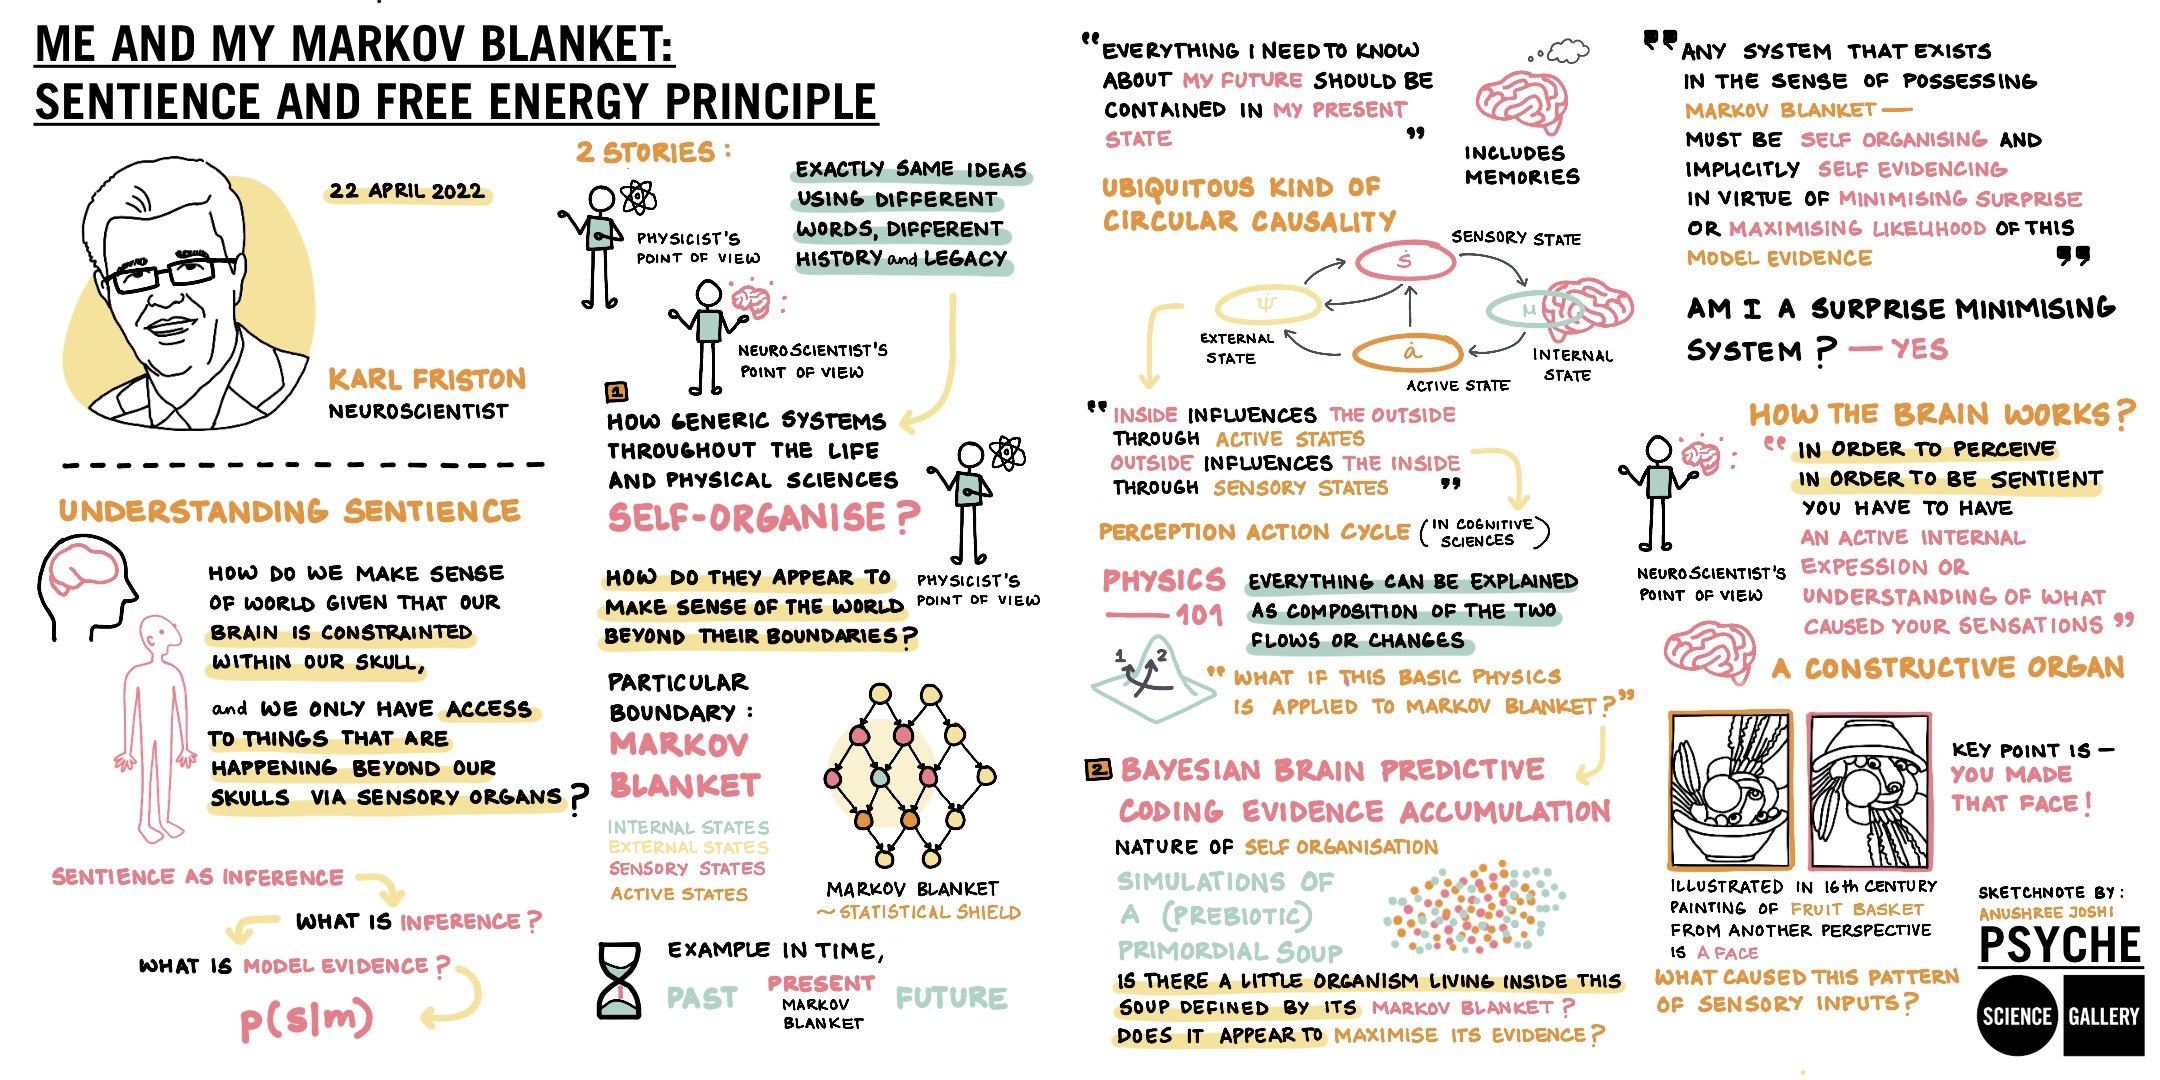 ME AND MY MARKOV BLANKET:
SENTIENCE AND FREE ENERGY PRINCIPLE
22 APRIL 2022
KARL FRISTON
NEUROSCIENTIST
UNDERSTANDING SENTIENCE
HOW DO WE MAKE SENSE
OF WORLD GIVEN THAT OUR
BRAIN IS CONSTRAINTED
WITHIN OUR SKULL,
and WE ONLY HAVE ACCESS
TO THINGS THAT ARE
HAPPENING BEYOND OUR
SKULLS VIA SENSORY ORGANS?
SENTIENCE AS INFERENCE
WHAT IS INFERENCE?
WHAT IS MODEL EVIDENCE?
p(s|m)
2 STORIES:
PHYSICIST'S
POINT OF VIEW
NEUROSCIENTIST'S
POINT OF VIEW
EXACTLY SAME IDEAS
USING DIFFERENT
WORDS, DIFFERENT
HISTORY and LEGACY
1
HOW GENERIC SYSTEMS
THROUGHOUT THE LIFE
AND PHYSICAL SCIENCES
SELF-ORGANISE?
HOW DO THEY APPEAR TO
MAKE SENSE OF THE WORLD
BEYOND THEIR BOUNDARIES?
PHYSICIST'S
POINT OF VIEW
PARTICULAR
BOUNDARY:
MARKOV
BLANKET
INTERNAL STATES
EXTERNAL STATES
SENSORY STATES
ACTIVE STATES
MARKOV BLANKET
~STATISTICAL SHIELD
EXAMPLE IN TIME,
PAST
PRESENT
MARKOV
BLANKET
FUTURE
"EVERYTHING I NEED TO KNOW
ABOUT MY FUTURE SHOULD BE
CONTAINED IN MY PRESENT
STATE"
INCLUDES
MEMORIES
UBIQUITOUS KIND OF
CIRCULAR CAUSALITY
SENSORY STATE
ṡ
ψ̇
μ̇
EXTERNAL
STATE
ȧ
INTERNAL
STATE
ACTIVE STATE
"INSIDE INFLUENCES THE OUTSIDE
THROUGH ACTIVE STATES
OUTSIDE INFLUENCES THE INSIDE
THROUGH SENSORY STATES"
PERCEPTION ACTION CYCLE (IN COGNITIVE
SCIENCES)
PHYSICS
— 101
EVERYTHING CAN BE EXPLAINED
AS COMPOSITION OF THE TWO
FLOWS OR CHANGES
1 2
"WHAT IF THIS BASIC PHYSICS
IS APPLIED TO MARKOV BLANKET?"
2 BAYESIAN BRAIN PREDICTIVE
CODING EVIDENCE ACCUMULATION
NATURE OF SELF ORGANISATION
SIMULATIONS OF
A (PREBIOTIC)
PRIMORDIAL SOUP
IS THERE A LITTLE ORGANISM LIVING INSIDE THIS
SOUP DEFINED BY ITS MARKOV BLANKET?
DOES IT APPEAR TO MAXIMISE ITS EVIDENCE?
"ANY SYSTEM THAT EXISTS
IN THE SENSE OF POSSESSING
MARKOV BLANKET—
MUST BE SELF ORGANISING AND
IMPLICITLY SELF EVIDENCING
IN VIRTUE OF MINIMISING SURPRISE
OR MAXIMISING LIKELIHOOD OF THIS
MODEL EVIDENCE"
AM I A SURPRISE MINIMISING
SYSTEM? — YES
HOW THE BRAIN WORKS?
"IN ORDER TO PERCEIVE
IN ORDER TO BE SENTIENT
YOU HAVE TO HAVE
AN ACTIVE INTERNAL
EXPESSION OR
UNDERSTANDING OF WHAT
CAUSED YOUR SENSATIONS"
NEUROSCIENTIST'S
POINT OF VIEW
A CONSTRUCTIVE ORGAN
KEY POINT IS —
YOU MADE
THAT FACE!
ILLUSTRATED IN 16th CENTURY
PAINTING OF FRUIT BASKET
FROM ANOTHER PERSPECTIVE
IS A FACE
WHAT CAUSED THIS PATTERN
OF SENSORY INPUTS?
SKETCHNOTE BY:
ANUSHREE JOSHI
PSYCHE
SCIENCE GALLERY